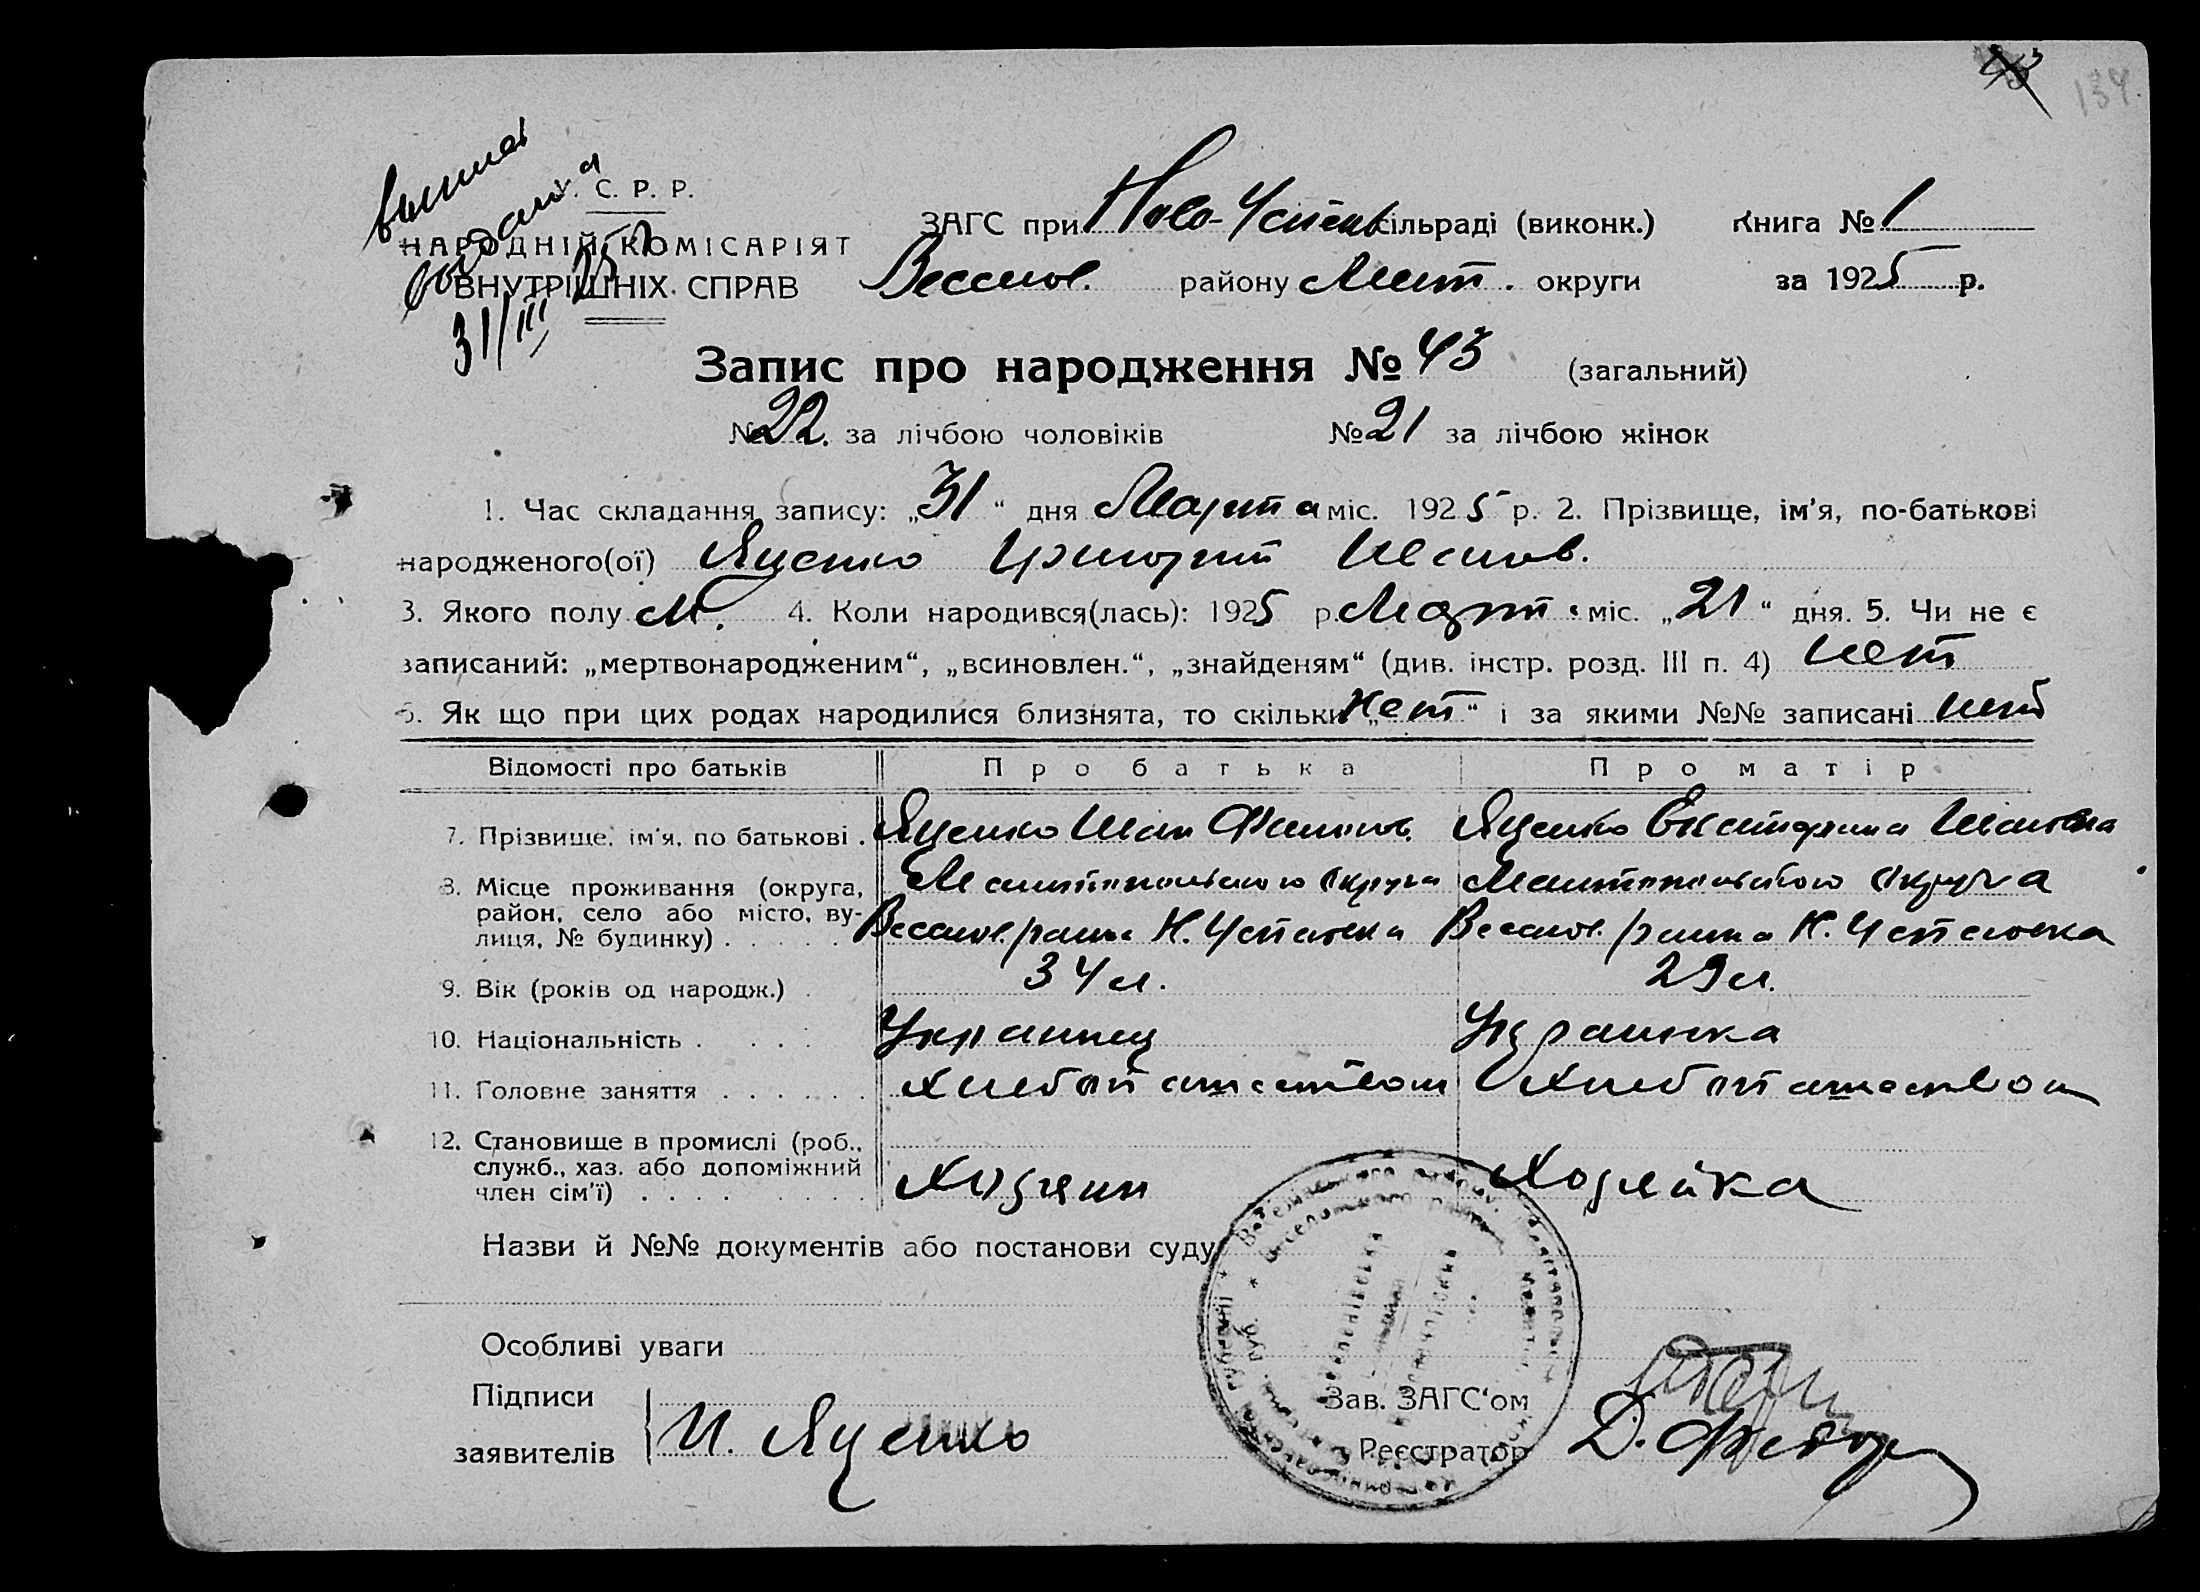 134.
выпись
выдана
31/III 25 г
У. С. Р. Р.
НАРОДНІЙ КОМІСАРІЯТ
ВНУТРІШНІХ СПРАВ
ЗАГС при Ново-Успен сільраді (виконк.) Книга № 1
Веселов. району Мелит. округи за 1925 р.
Запис про народження № 43 (загальний)
№ 22. за лічбою чоловіків № 21 за лічбою жінок
1. Час складання запису: „31“ дня Марта міс. 1925 р. 2. Прізвище, ім'я, по-батькові
народженого(ої) Яценко Григорий Иванов.
3. Якого полу М. 4. Коли народився(лась): 1925 р. Март міс. „21“ дня. 5. Чи не є
записаний: „мертвонародженим“, „всиновлен.“, „знайденям“ (див. інстр. розд. III п. 4) Нет
6. Як що при цих родах народилися близнята, то скільки „Нет“ і за якими №№ записані нет
Відомості про батьків Про батька Про матір
7. Прізвище, ім'я, по батькові . Яценко Иван Филипов. Яценко Екатерина Ивановна
8. Місце проживання (округа, район, село або місто, вулиця, № будинку) . . . . . Мелитопольского округа Мелитопольского округа
Веселов. район Н. Успеновка Веселов. района Н. Успеновка
9. Вік (років од народж.) . 34 л. 29 л.
10. Національність . . . . Украинец Украинка
11. Головне заняття . . . . . . Хлебопашеством Хлебопашеством
12. Становище в промислі (роб., служб., хаз. або допоміжний член сім'ї) . . . . . . . Хозяин Хозяйка
Назви й №№ документів або постанови суду
Особливі уваги
Підписи
заявителів И. Яценко
Зав. ЗАГС'ом
Реєстратор Д.